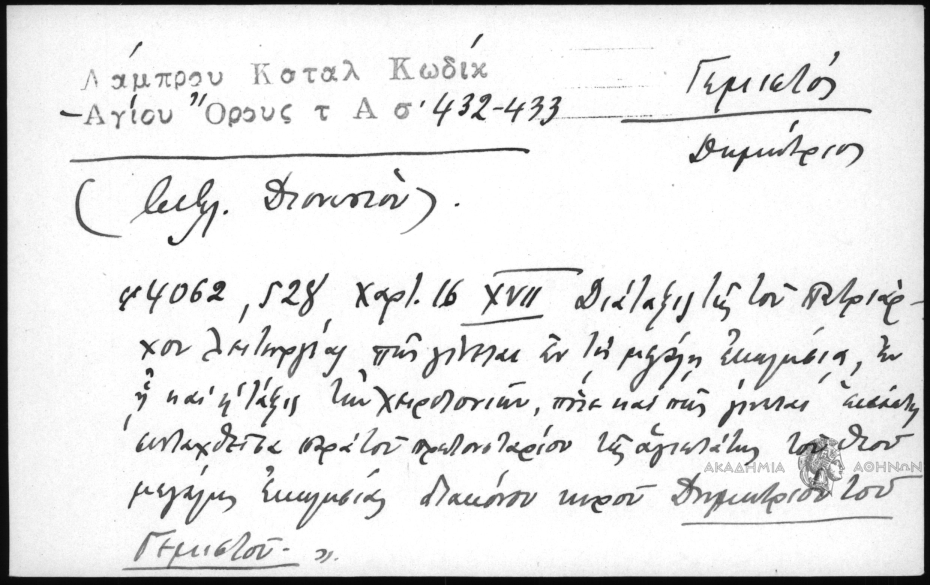 Λάμπρου Καταλ Κωδίκ
Αγίου Ὄρους τ Α σ. 432-433
Γεμιστός
Δημήτριος
(Διονυσίου).
4062, 528 χαρτ. 16 XVII Διάταξις τῆς τοῦ Πατριάρ-
χου λειτουργίας πῶς γίνεται ἐν τῇ μεγάλῃ ἐκκλησίᾳ, ἐν
ᾗ καὶ ἡ τάξις τῶν χειροτονιῶν, πότε καὶ πῶς γίνεται ἑκάστη
συνταχθεῖσα παρὰ τοῦ πρωτονοταρίου τῆς ἁγιωτάτης τοῦ Θεοῦ
μεγάλης Ἐκκλησίας διακόνου κυροῦ Δημητρίου τοῦ
Γεμιστοῦ- ».
ΑΚΑΔΗΜΙΑ ΑΘΗΝΩΝ